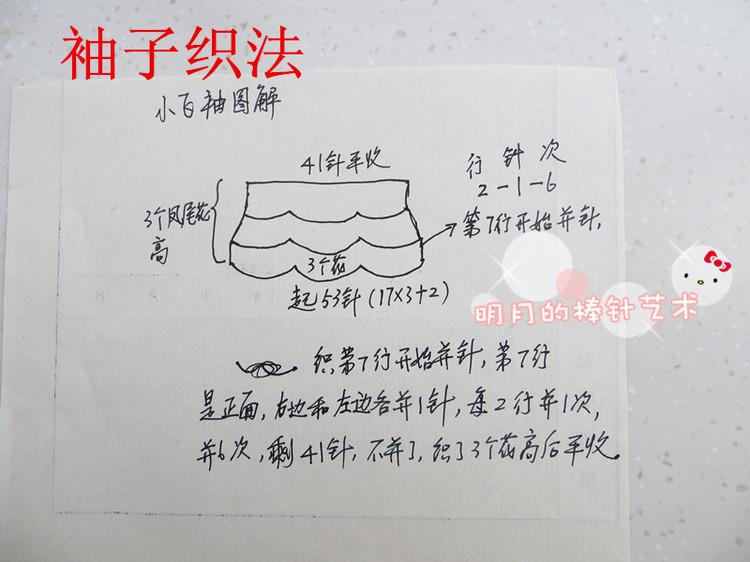 袖子织法
小百袖图解
41针平收
行 针 次
2-1-6
3个凤尾花
高
第7行开始并针,
3个花
起53针(17×3+2)
明月的棒针艺术
织第7行开始并针,第7行
是正面,右边和左边各并1针,每2行并1次,
并6次,剩41针,不并了,织了3个花高后平收。